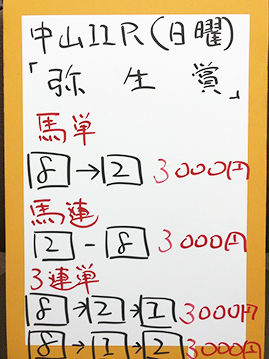 中山11R(日曜)
「弥生賞」
馬単
8→2 3000円
馬連
2-8 3000円
3連単
8→2→1 3000円
8→1→2 3000円